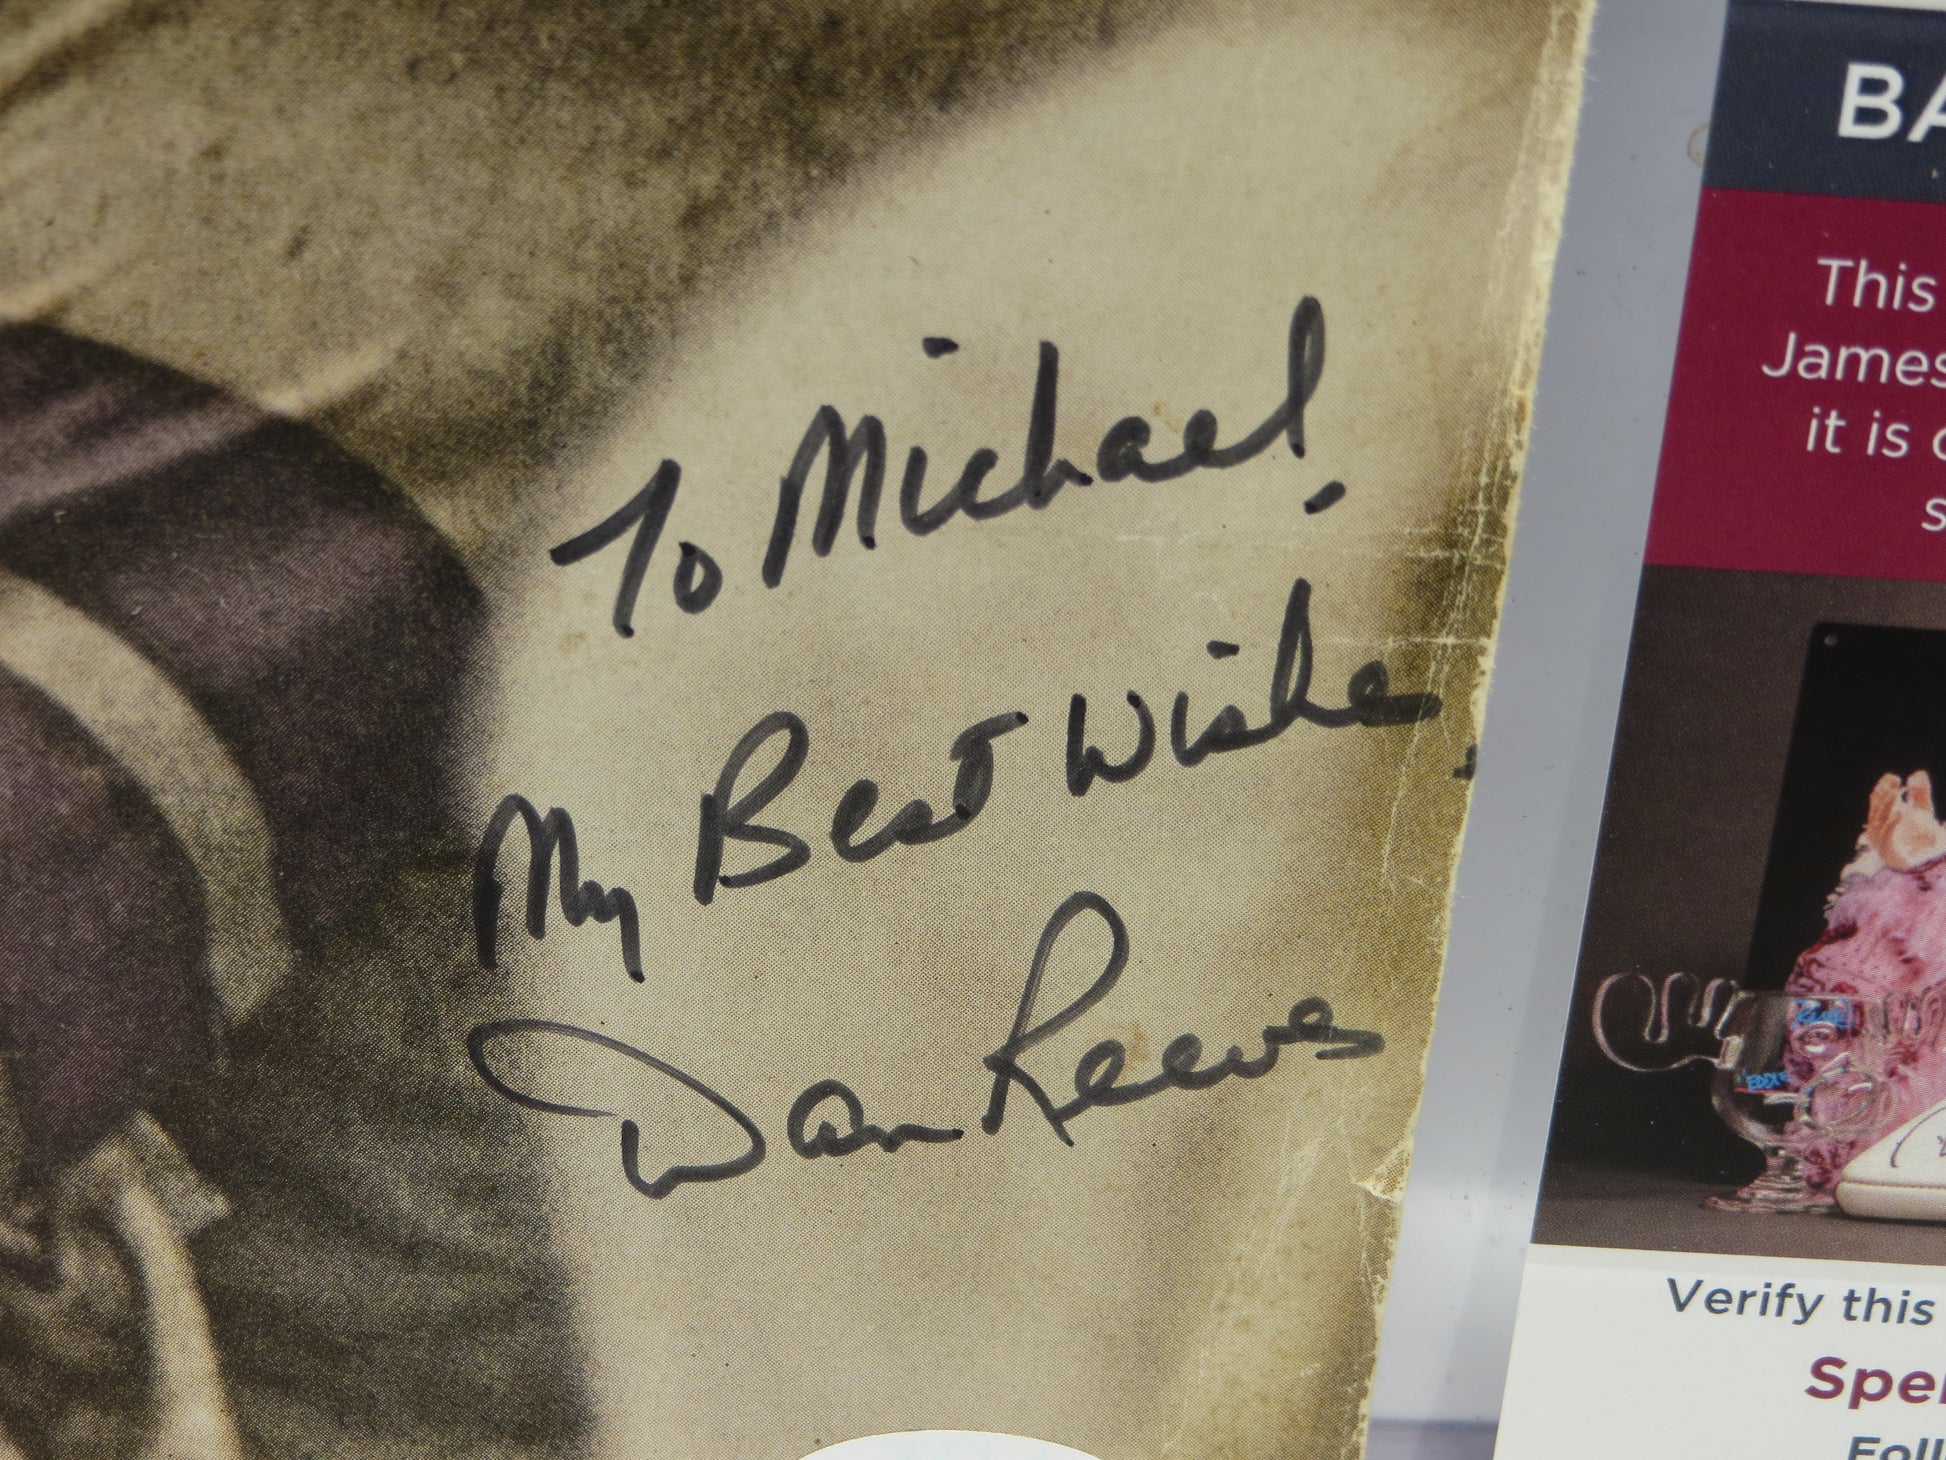 To Michael,
My Best Wishe
Dan Reeves
BA
This
James
it is
s
Verify this
Spe
Foll